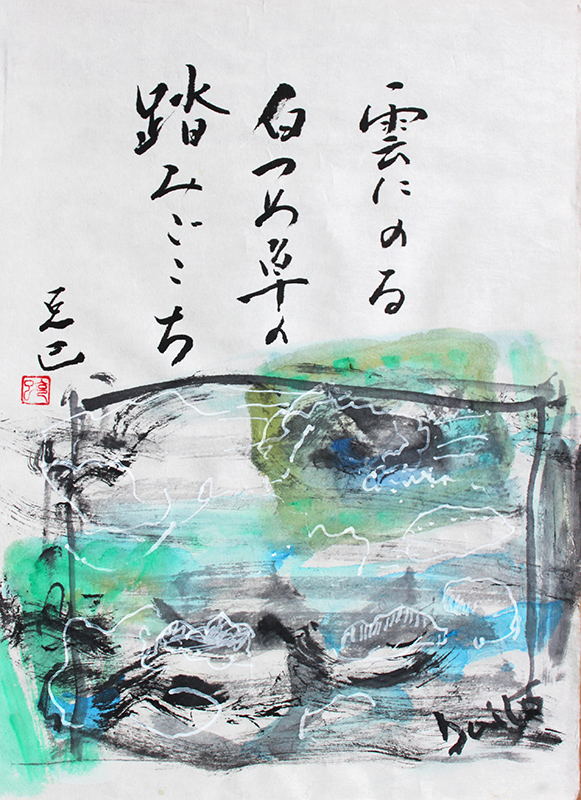 雲にのる
白つめ草の
踏みごこち
克巳